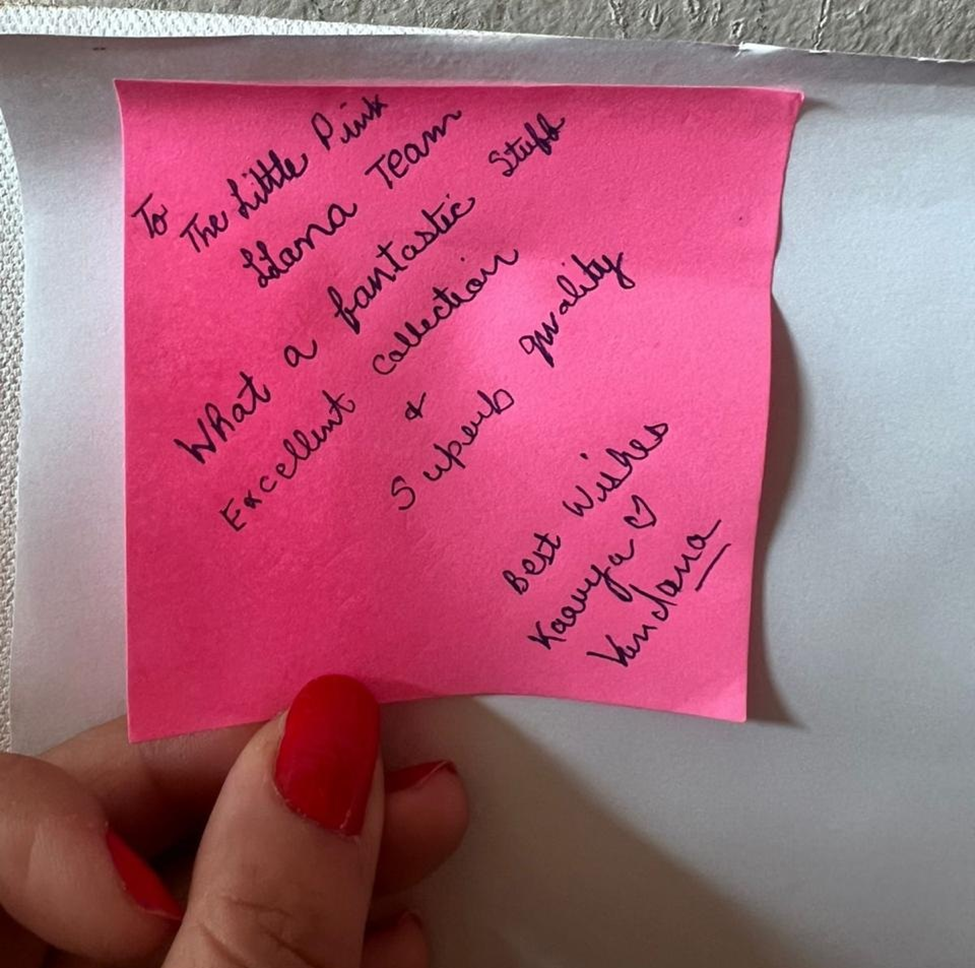 To
The Little Pink
Llama Team
What a fantastic Stuff
Excellent collection
&
Superb quality
Best Wishes
Kaavya ♡
Vandana